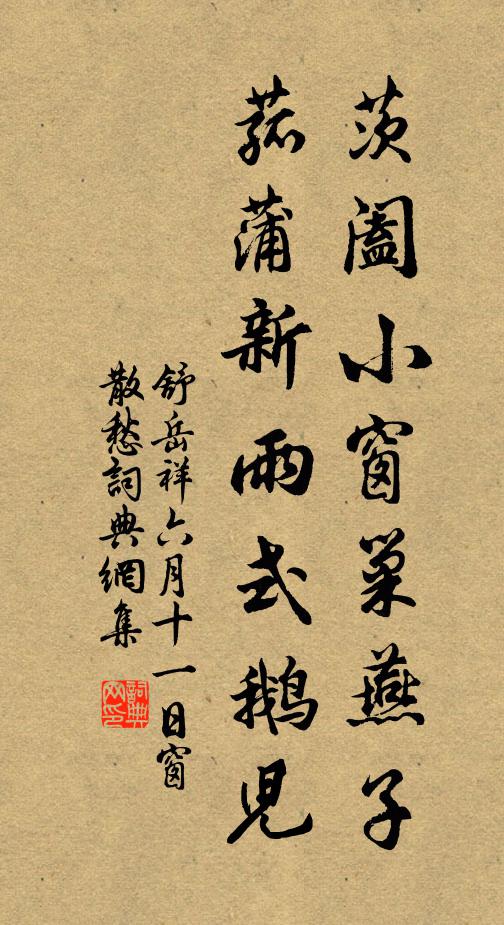 茨闔小窗巢燕子
菰蒲新雨式鵝兒
舒岳祥六月十一日窗
散愁詞典網集
詞典网印